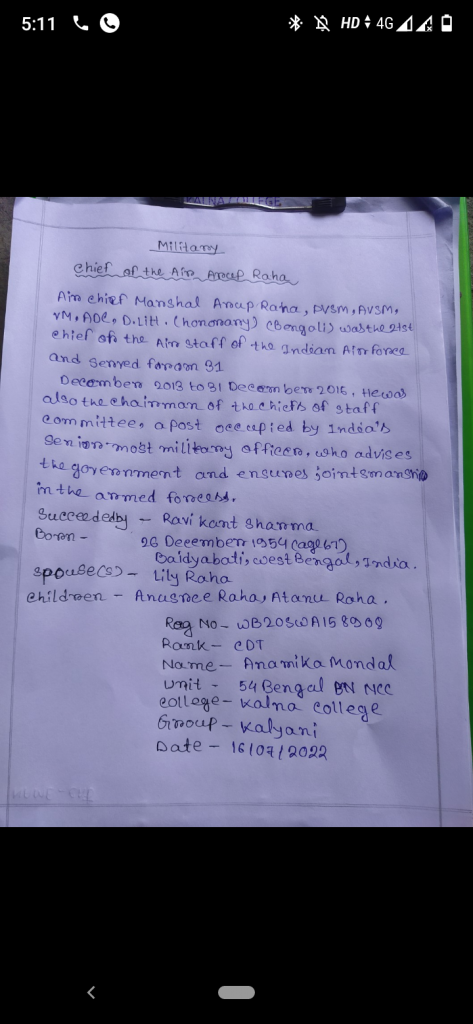 5:11
HD 4G
KALNA COLLEGE
Military
Chief of the Air Anup Raha
Air chief Marshal Anup Raha, PVSM, AVSM,
VM, ADC, D.Litt. (honorary) (Bengali) was the 21st
chief of the Air staff of the Indian Air Force
and served from 31
December 2013 to 31 December 2016, He was
also the chairman of the chiefs of staff
committee, a post occupied by India's
senior-most military officer, who advises
the government and ensures jointsmanship
in the armed forcess.
Succeeded by - Ravi kant sharma
Born -
26 December 1954 (age 67)
Baidyabati, west Bengal, India.
spouse(s) - Lily Raha
children - Anusree Raha, Atanu Raha.
Reg No - WB20SWA158908
Rank - CDT
Name - Anamika Mondal
Unit - 54 Bengal BN NCC
college - Kalna college
Group - Kalyani
Date - 16/07/2022